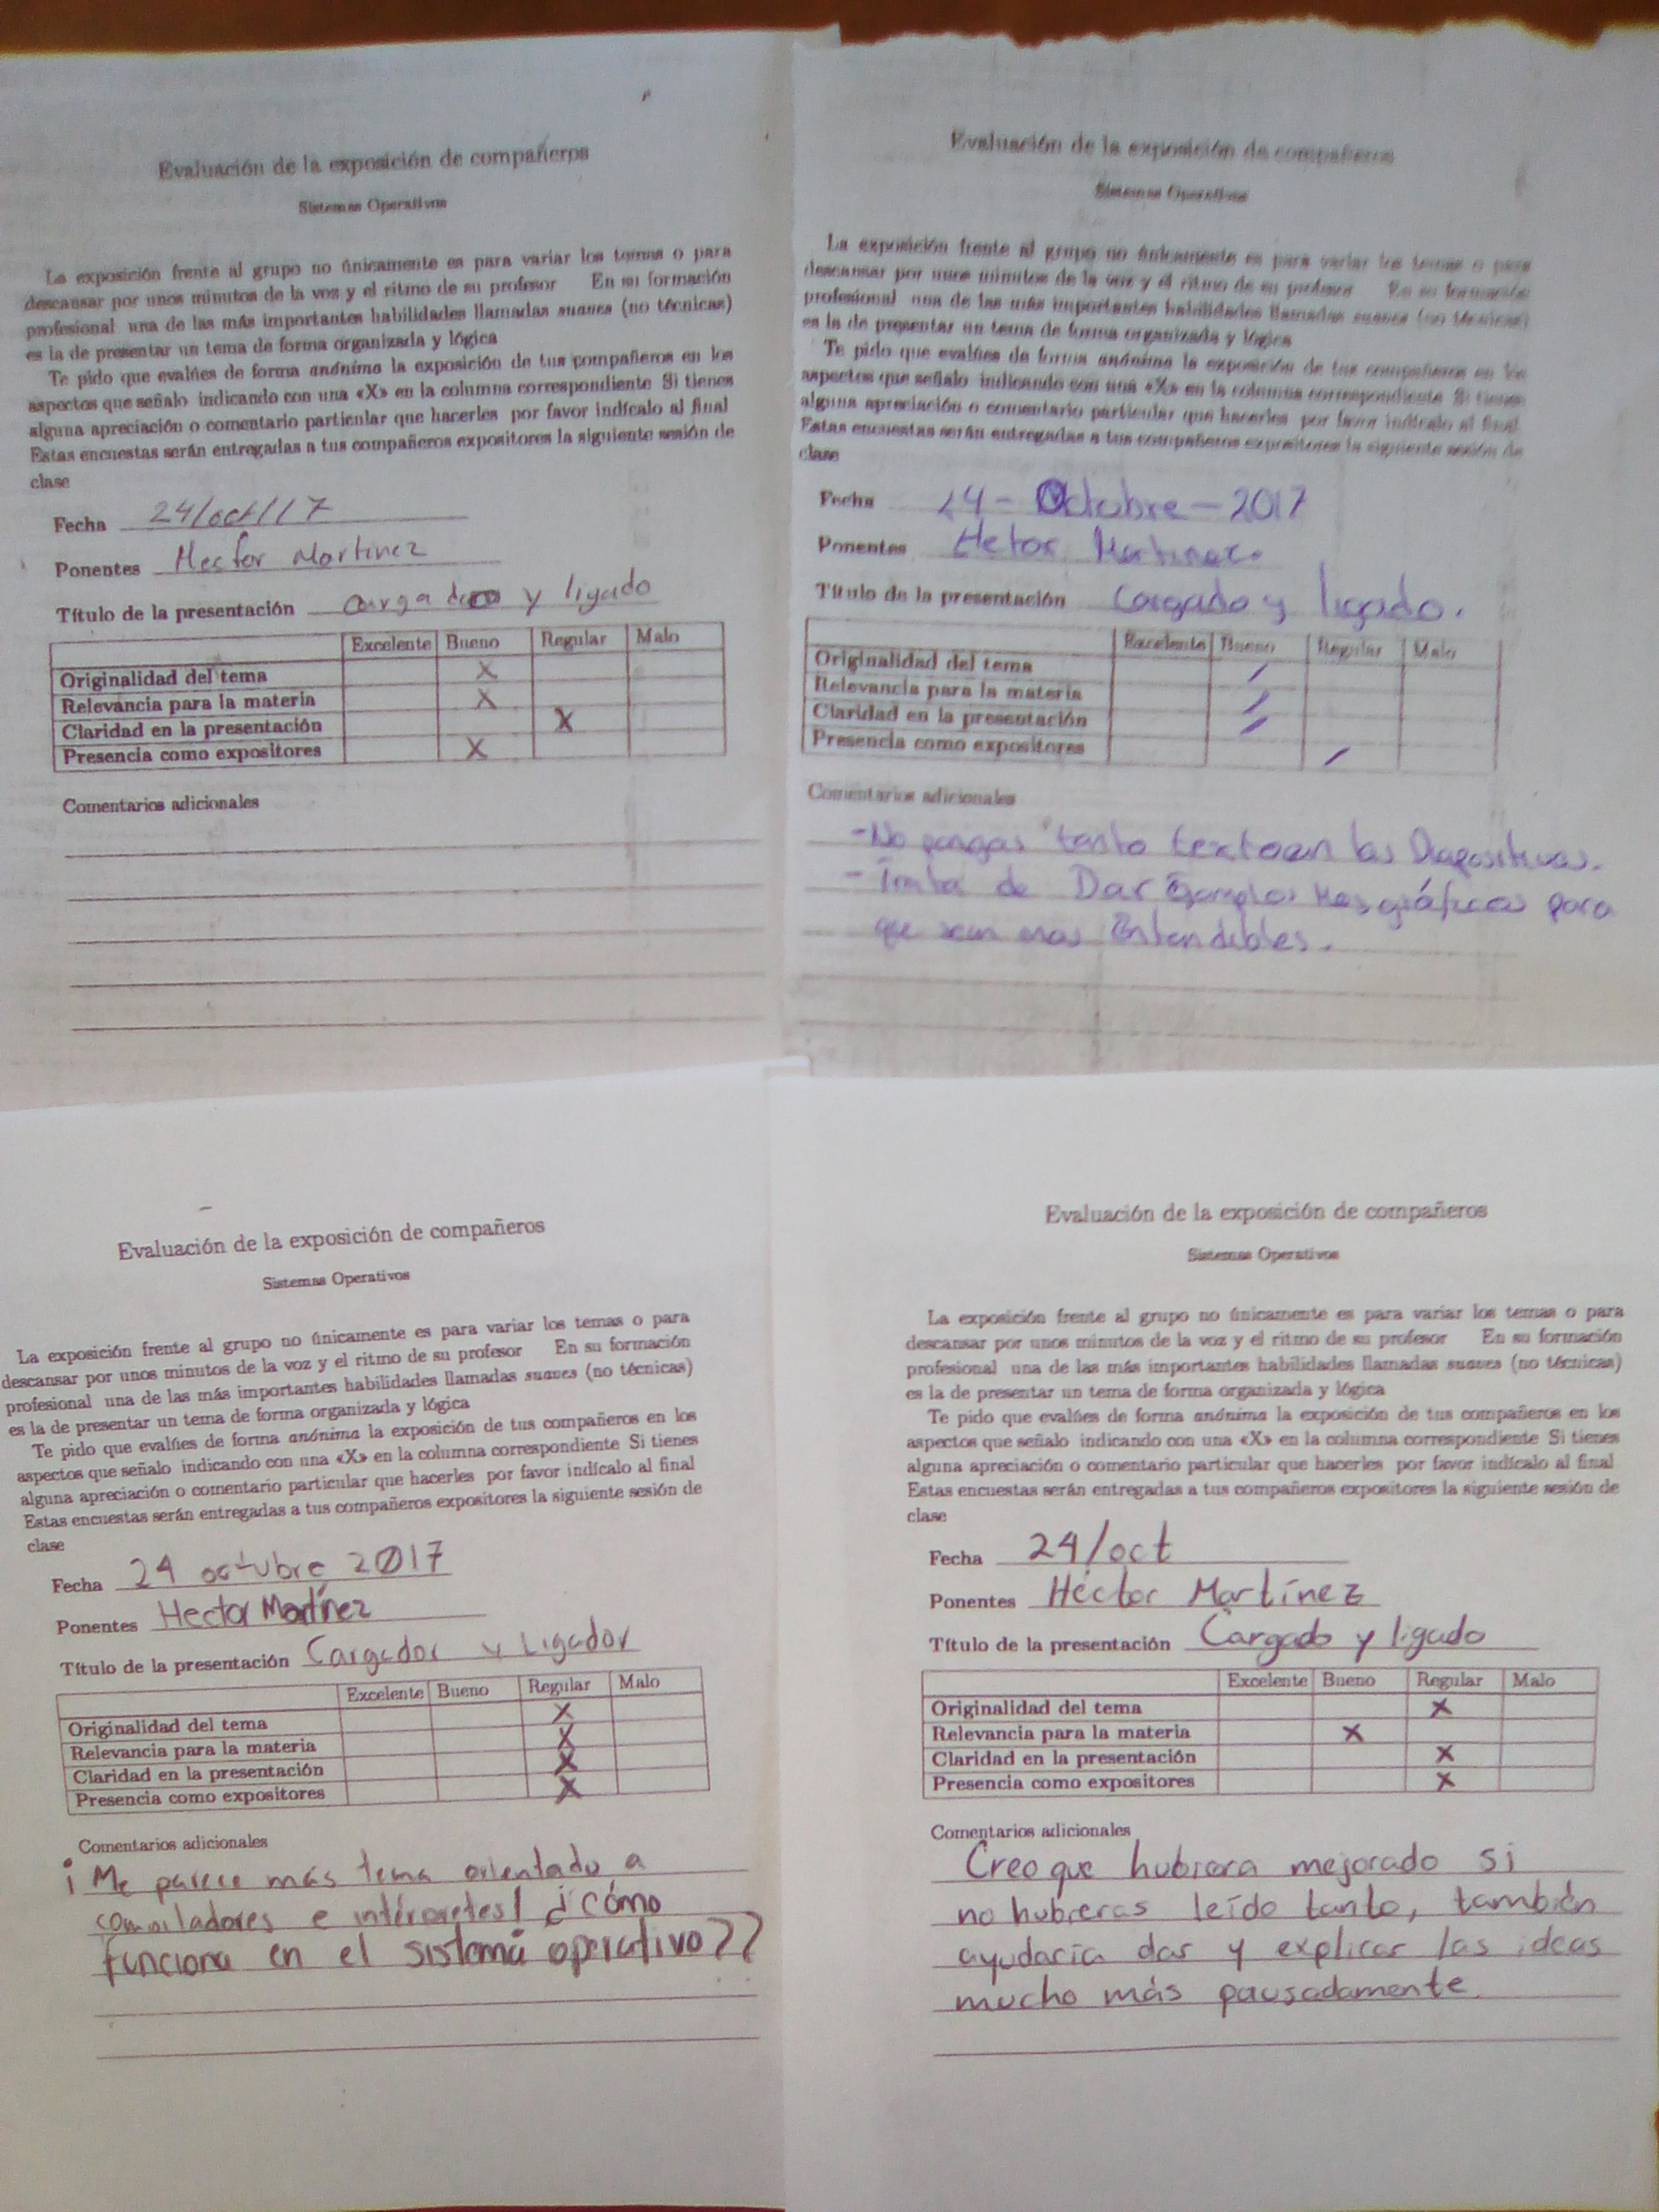 Evaluación de la exposición de compañeros
Sistemas Operativos
La exposición frente al grupo no únicamente es para variar los temas o para
descansar por unos minutos de la voz y el ritmo de su profesor En su formación
profesional una de las más importantes habilidades llamadas suaves (no técnicas)
es la de presentar un tema de forma organizada y lógica
Te pido que evalúes de forma anónima la exposición de tus compañeros en los
aspectos que señalo indicando con una «X» en la columna correspondiente Si tienes
alguna apreciación o comentario particular que hacerles por favor indícalo al final
Estas encuestas serán entregadas a tus compañeros expositores la siguiente sesión de
clase
Fecha 24/oct/17
Ponentes Hector Martinez
Título de la presentación y ligado
Excelente Bueno Regular Malo
Originalidad del tema X
Relevancia para la materia X
Claridad en la presentación X
Presencia como expositores X
Comentarios adicionales
Evaluación de la exposición de compañeros
Sistemas Operativos
La exposición frente al grupo no únicamente es para variar los temas o para
descansar por unos minutos de la voz y el ritmo de su profesor En su formación
profesional una de las más importantes habilidades llamadas suaves (no técnicas)
es la de presentar un tema de forma organizada y lógica
Te pido que evalúes de forma anónima la exposición de tus compañeros en los
aspectos que señalo indicando con una «X» en la columna correspondiente Si tienes
alguna apreciación o comentario particular que hacerles por favor indícalo al final
Estas encuestas serán entregadas a tus compañeros expositores la siguiente sesión de
clase
Fecha 24-Octubre-2017
Ponentes Hetor Martinez.
Título de la presentación Cargado y ligado.
Excelente Bueno Regular Malo
Originalidad del tema /
Relevancia para la materia /
Claridad en la presentación /
Presencia como expositores /
Comentarios adicionales
-No pongas tanto texto en las Diapositivas.
- Trata de Dar Ejemplos Mas gráficos para
que sean mas Entendibles.
Evaluación de la exposición de compañeros
Sistemas Operativos
La exposición frente al grupo no únicamente es para variar los temas o para
descansar por unos minutos de la voz y el ritmo de su profesor En su formación
profesional una de las más importantes habilidades llamadas suaves (no técnicas)
es la de presentar un tema de forma organizada y lógica
Te pido que evalúes de forma anónima la exposición de tus compañeros en los
aspectos que señalo indicando con una «X» en la columna correspondiente Si tienes
alguna apreciación o comentario particular que hacerles por favor indícalo al final
Estas encuestas serán entregadas a tus compañeros expositores la siguiente sesión de
clase
Fecha 24 octubre 2017
Ponentes Hector Martínez
Título de la presentación Cargador y Ligador
Excelente Bueno Regular Malo
Originalidad del tema X
Relevancia para la materia X
Claridad en la presentación X
Presencia como expositores X
Comentarios adicionales
¡Me parece más tema orientado a
compiladores e intérpretes! ¿cómo
funciona en el sistema operativo??
Evaluación de la exposición de compañeros
Sistemas Operativos
La exposición frente al grupo no únicamente es para variar los temas o para
descansar por unos minutos de la voz y el ritmo de su profesor En su formación
profesional una de las más importantes habilidades llamadas suaves (no técnicas)
es la de presentar un tema de forma organizada y lógica
Te pido que evalúes de forma anónima la exposición de tus compañeros en los
aspectos que señalo indicando con una «X» en la columna correspondiente Si tienes
alguna apreciación o comentario particular que hacerles por favor indícalo al final
Estas encuestas serán entregadas a tus compañeros expositores la siguiente sesión de
clase
Fecha 24/oct
Ponentes Héctor Martínez
Título de la presentación Cargado y ligado
Excelente Bueno Regular Malo
Originalidad del tema X
Relevancia para la materia X
Claridad en la presentación X
Presencia como expositores X
Comentarios adicionales
Creo que hubiera mejorado si
no hubieras leído tanto, también
ayudaría dar y explicar las ideas
mucho más pausadamente.